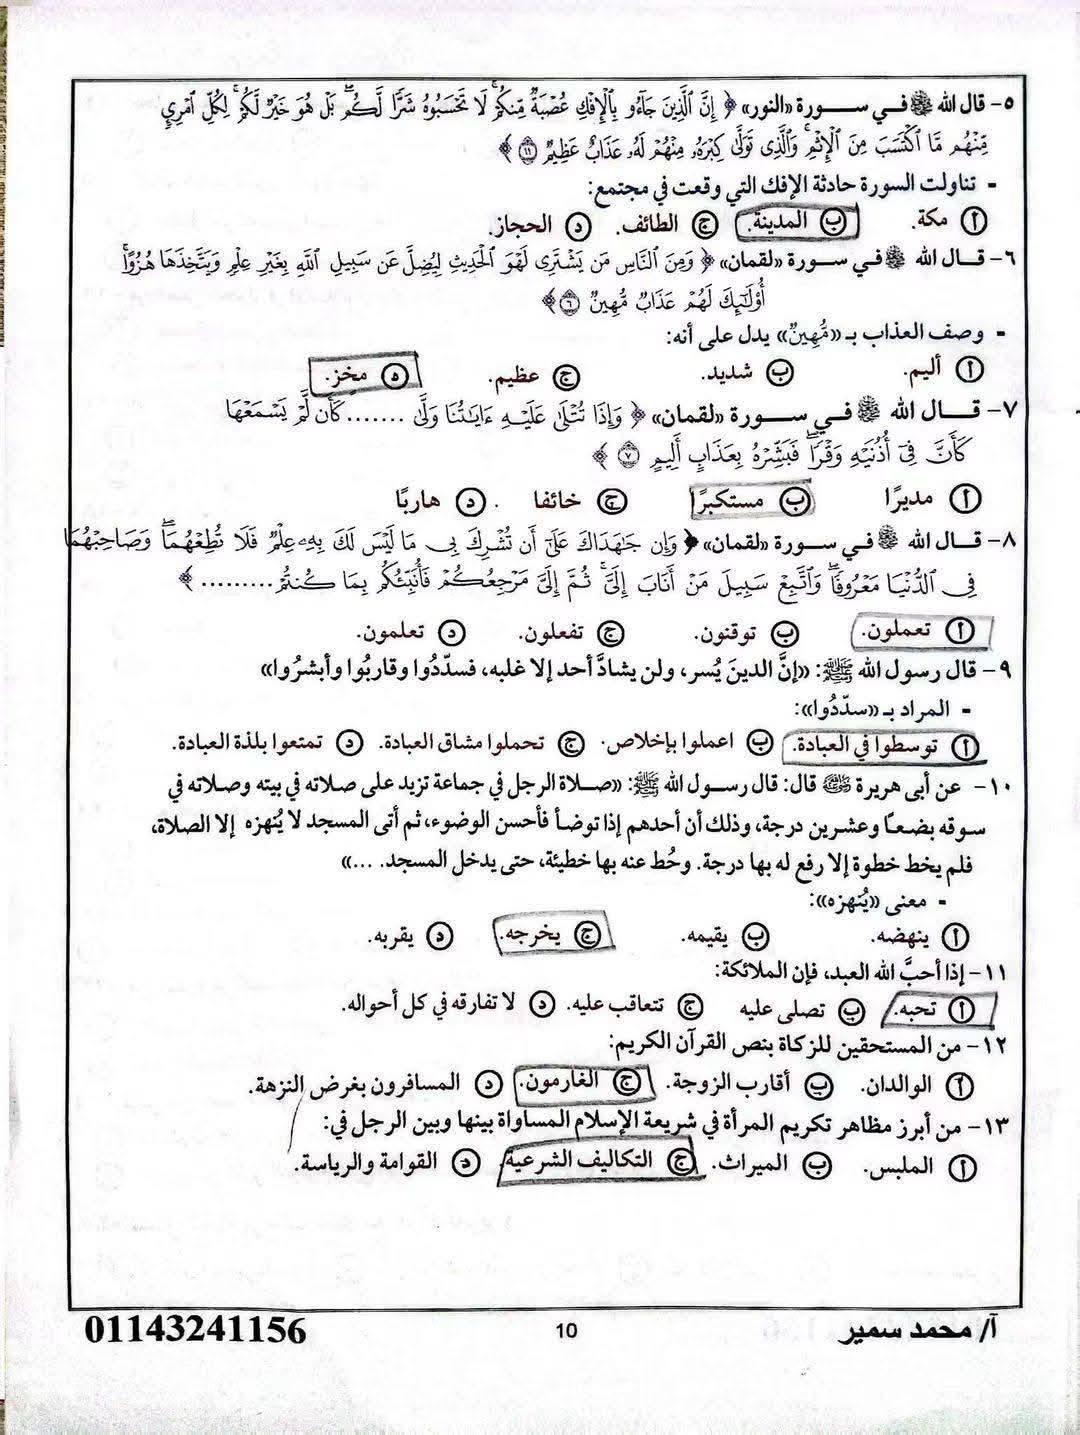 ٥- قال الله ﷻ في سورة «النور» ﴿ إِنَّ ٱلَّذِينَ جَآءُو بِٱلْإِفْكِ عُصْبَةٌ مِّنكُمْ ۚ لَا تَحْسَبُوهُ شَرًّا لَّكُم ۖ بَلْ هُوَ خَيْرٌ لَّكُمْ ۚ لِكُلِّ ٱمْرِئٍ
مِّنْهُم مَّا ٱكْتَسَبَ مِنَ ٱلْإِثْمِ ۚ وَٱلَّذِى تَوَلَّىٰ كِبْرَهُۥ مِنْهُمْ لَهُۥ عَذَابٌ عَظِيمٌ ۝١١ ﴾
- تناولت السورة حادثة الإفك التي وقعت في مجتمع:
أ مكة. ب المدينة. ج الطائف. د الحجاز.
٦- قال الله ﷻ في سورة «لقمان» ﴿ وَمِنَ ٱلنَّاسِ مَن يَشْتَرِى لَهْوَ ٱلْحَدِيثِ لِيُضِلَّ عَن سَبِيلِ ٱللَّهِ بِغَيْرِ عِلْمٍ وَيَتَّخِذَهَا هُزُوًا ۚ
أُو۟لَـٰٓئِكَ لَهُمْ عَذَابٌ مُّهِينٌ ۝٦ ﴾
- وصف العذاب بـ «مُّهِينٌ» يدل على أنه:
أ أليم. ب شديد. ج عظيم. ه مخز.
٧- قال الله ﷻ في سورة «لقمان» ﴿ وَإِذَا تُتْلَىٰ عَلَيْهِ ءَايَـٰتُنَا وَلَّىٰ ....... كَأَن لَّمْ يَسْمَعْهَا
كَأَنَّ فِىٓ أُذُنَيْهِ وَقْرًا ۖ فَبَشِّرْهُ بِعَذَابٍ أَلِيمٍ ۝٧ ﴾
أ مديرًا ب مستكبرًا ج خائفا . د هاربًا
٨- قال الله ﷻ في سورة «لقمان» ﴿ وَإِن جَـٰهَدَاكَ عَلَىٰٓ أَن تُشْرِكَ بِى مَا لَيْسَ لَكَ بِهِۦ عِلْمٌ فَلَا تُطِعْهُمَا ۖ وَصَاحِبْهُمَا
فِى ٱلدُّنْيَا مَعْرُوفًا ۖ وَٱتَّبِعْ سَبِيلَ مَنْ أَنَابَ إِلَىَّ ۚ ثُمَّ إِلَىَّ مَرْجِعُكُمْ فَأُنَبِّئُكُم بِمَا كُنتُمْ ......... ﴾
أ تعملون. ب توقنون. ج تفعلون. د تعلمون.
٩- قال رسول الله ﷺ: «إنَّ الدينَ يُسر، ولن يشادَّ أحد إلا غلبه، فسدّدُوا وقاربُوا وأبشرُوا»
- المراد بـ «سدّدُوا»:
أ توسطوا في العبادة. ب اعملوا بإخلاص. ج تحملوا مشاق العبادة. د تمتعوا بلذة العبادة.
١٠- عن أبى هريرة ﵁ قال: قال رسول الله ﷺ: «صلاة الرجل في جماعة تزيد على صلاته في بيته وصلاته في
سوقه بضعًا وعشرين درجة، وذلك أن أحدهم إذا توضأ فأحسن الوضوء، ثم أتى المسجد لا يُنهزه إلا الصلاة،
فلم يخط خطوة إلا رفع له بها درجة. وحُط عنه بها خطيئة، حتى يدخل المسجد. ...»
- معنى «يُنهزه»:
أ ينهضه. ب يقيمه. ج يخرجه. د يقربه.
١١- إذا أحبَّ الله العبد، فإن الملائكة:
أ تحبه. ب تصلى عليه ج تتعاقب عليه. د لا تفارقه في كل أحواله.
١٢- من المستحقين للزكاة بنص القرآن الكريم:
أ الوالدان. ب أقارب الزوجة. ج الغارمون. د المسافرون بغرض النزهة.
١٣- من أبرز مظاهر تكريم المرأة في شريعة الإسلام المساواة بينها وبين الرجل في:
أ الملبس. ب الميراث. ج التكاليف الشرعية. د القوامة والرياسة.
أ/ محمد سمير 10 01143241156